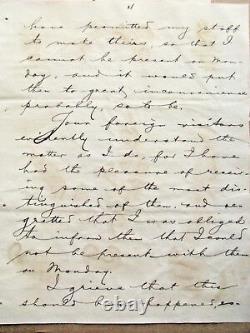 have permitted my staff
to make theirs, so that I
cannot be present on Mon-
day, and it would put
them to great inconvenience
probably, so to be.
Your foreign visitors
evidently understand the
matter as I do, for I have
had the pleasure of receiv-
ing some of the most dis-
tinguished of them, and re-
gretted that I was obliged
to inform them that I could
not be present with them
on Monday.
I grieve that this
should have happened, es-